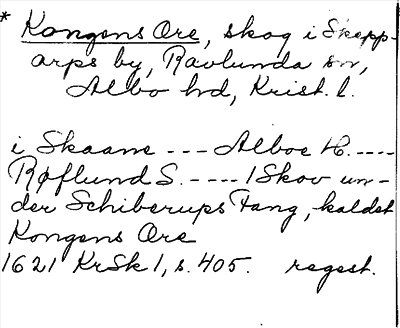 * Kongens Ore, skog i Skepp-
arps by, Ravlunda sn,
Albo hd, Krist. l.
i Skaane --- Alboe H. ----
Røflund S. ---- 1 Skov un-
der Schiberups Fang, kaldet
Kongens Ore
1621 KrSk 1, s. 405. regest.